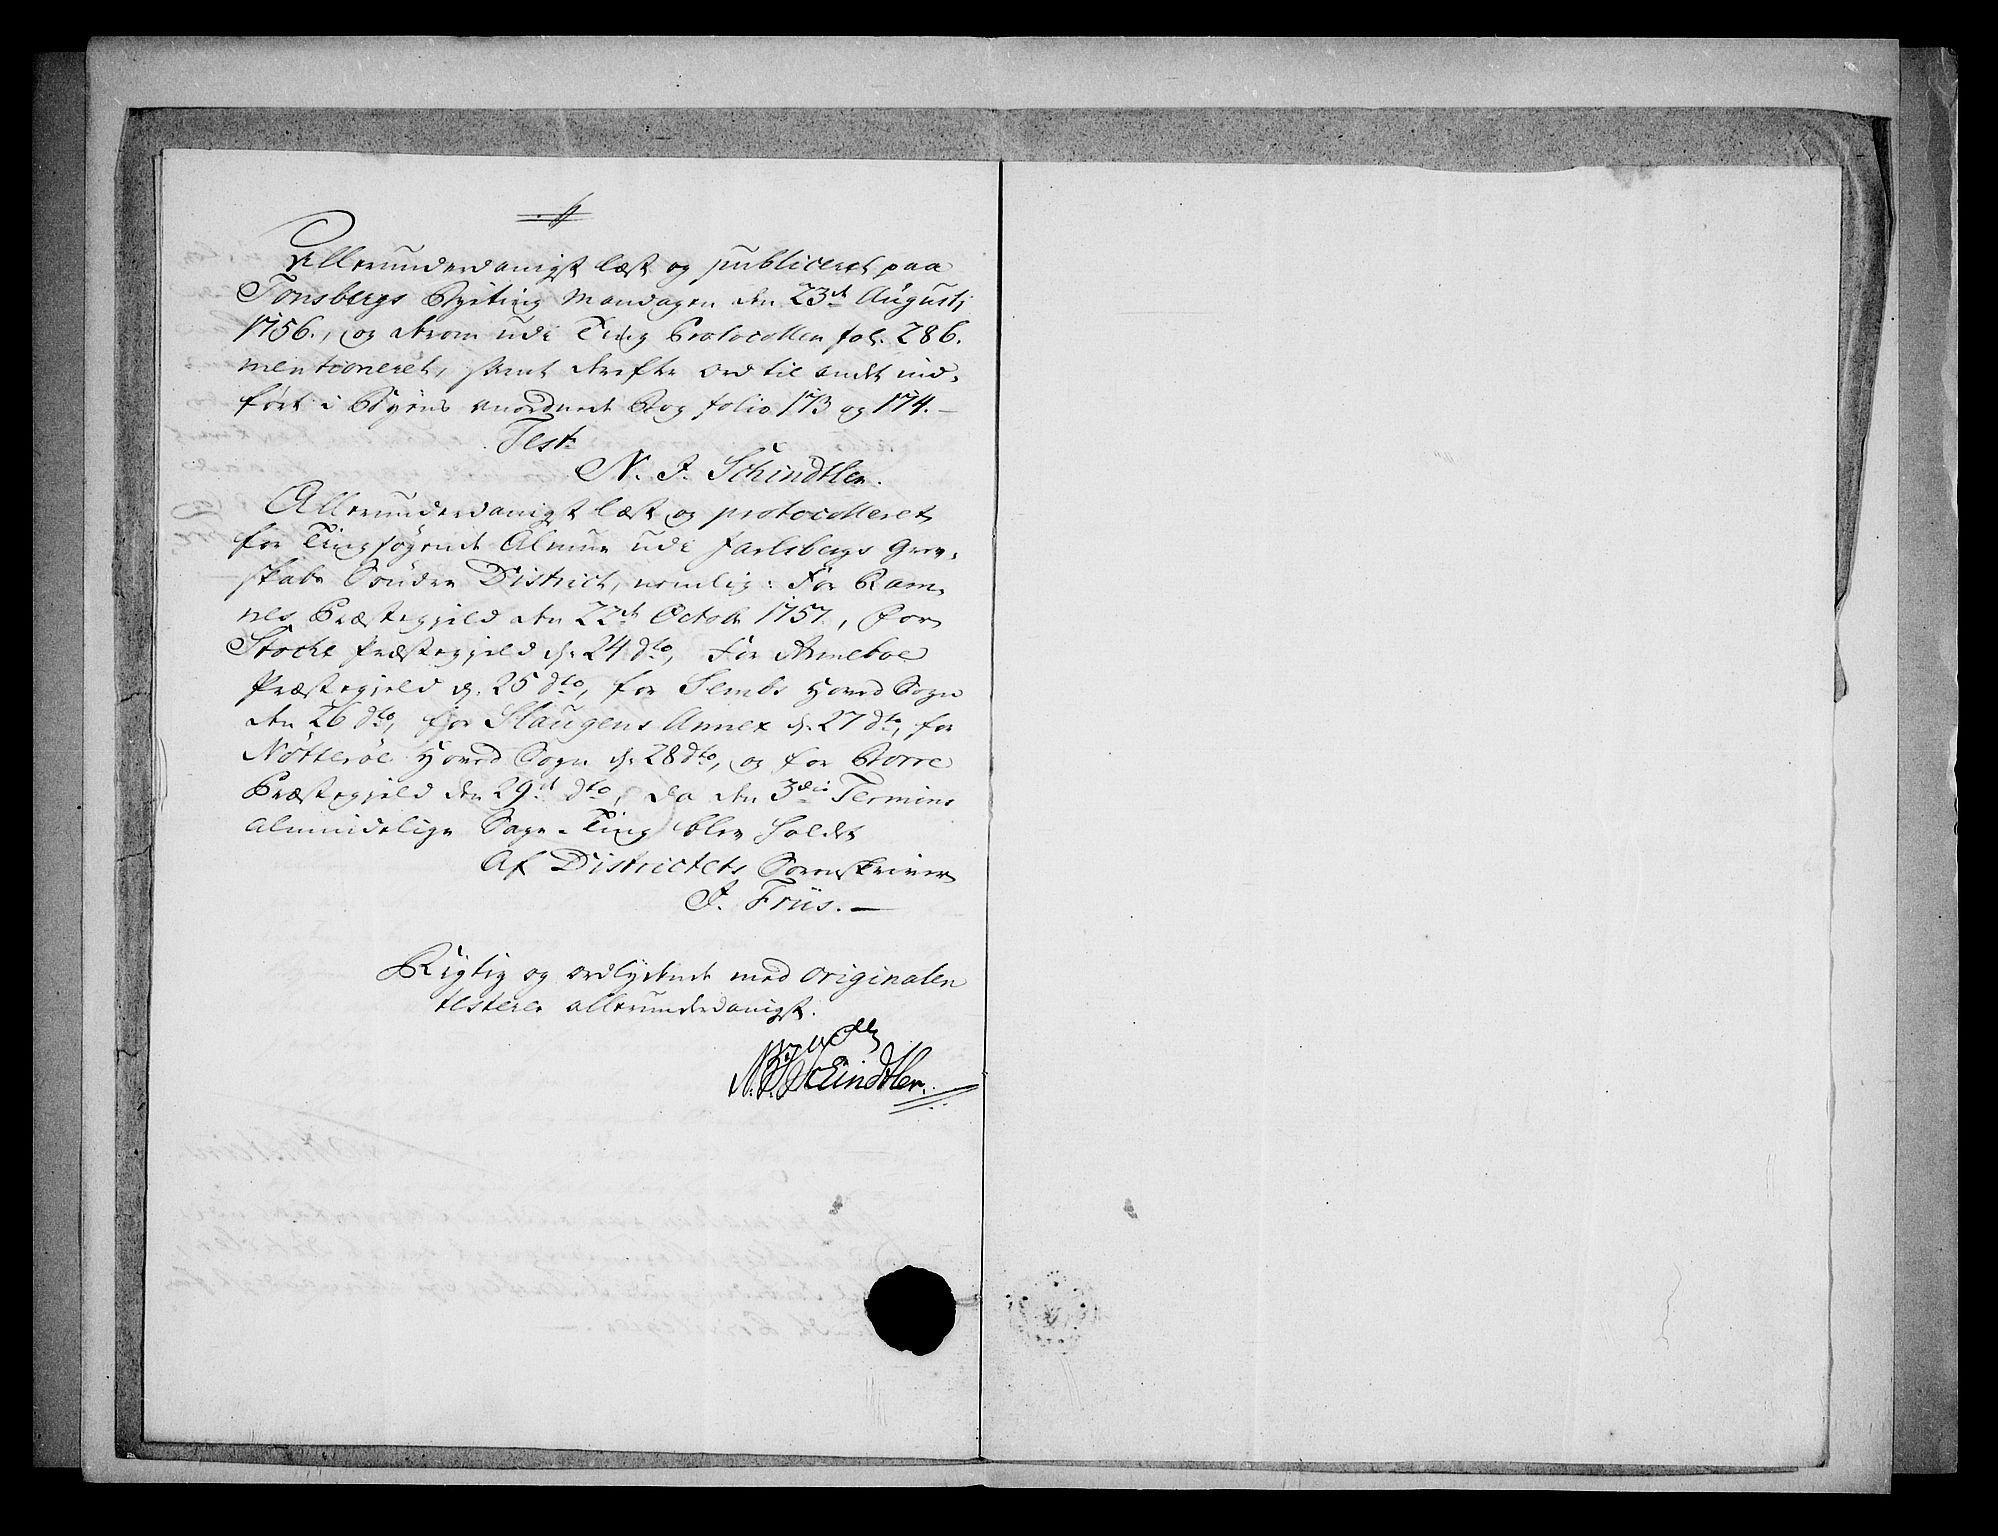 Allerunderdanigst læst og publiceret paa
Tonsbergs Byting Mandagen den 23de Augustj
1756., og derom udi Ting Protocollen fol. 286.
mentioneret, samt derefter ord til andet ind-
ført i Byens anordnede Bog folio 173 og 174.—
Test
N. J. Schindtler.
Allerunderdanigst læst og protocolleret
for Tingsøgende Almue udi Jarlsbergs Grev-
skabs Søndre District, nemlig: for Ram-
nes Præstegjeld den 22de Octobr 1757, for
Stocke Præstegjeld d. 24 dto, for Arneboe
Præstegjeld d. 25 dto, for Sembs Hoved Sogn
den 26 dto, for Slaugens Annex d. 27 dto, for
Nötteröe Hoved Sogn d. 28 dto, og for Borre
Præstegjeld den 29de dto, da den 3die Termins
almindelige Sage-Ting blev holdet
Af Districtets Sorenskriver
J. Friis.—
Rigtig og ordlydende med originalen
testerer allerunderdanigst.
N. J. Schindtler.